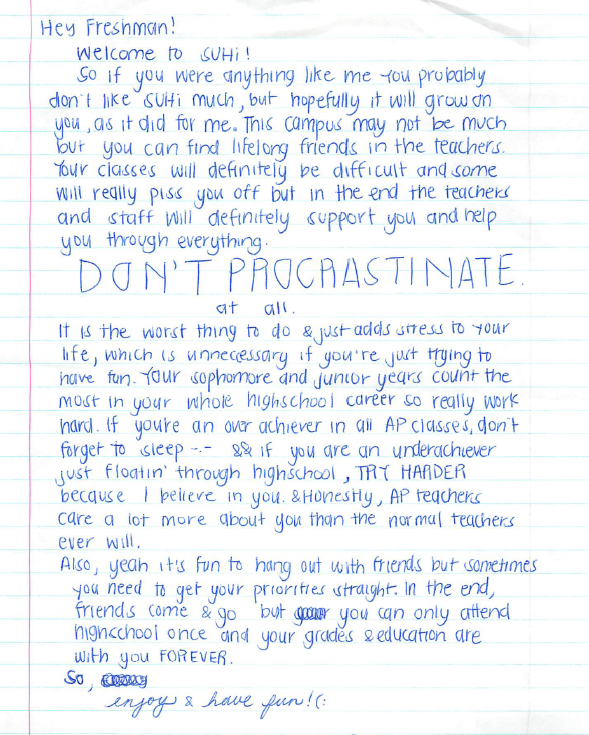 Hey Freshman!
Welcome to SUHi!
So if you were anything like me you probably
don't like SUHi much, but hopefully it will grow on
you, as it did for me. This campus may not be much
but you can find lifelong friends in the teachers.
Your classes will definitely be difficult and some
will really piss you off but in the end the teachers
and staff will definitely support you and help
you through everything.
DON'T PROCRASTINATE.
at all.
It is the worst thing to do & just adds stress to your
life, which is unnecessary if you're just trying to
have fun. Your sophomore and junior years count the
most in your whole highschool career so really work
hard. If you're an over achiever in all AP classes, don't
forget to sleep -.- && if you are an underachiever
just floatin' through highschool, TRY HARDER
because I believe in you. & Honestly, AP teachers
care a lot more about you than the normal teachers
ever will.
Also, yeah it's fun to hang out with friends but sometimes
you need to get your priorities straight. In the end,
friends come & go but you can only attend
highschool once and your grades & education are
with you FOREVER.
So,
enjoy & have fun! (: